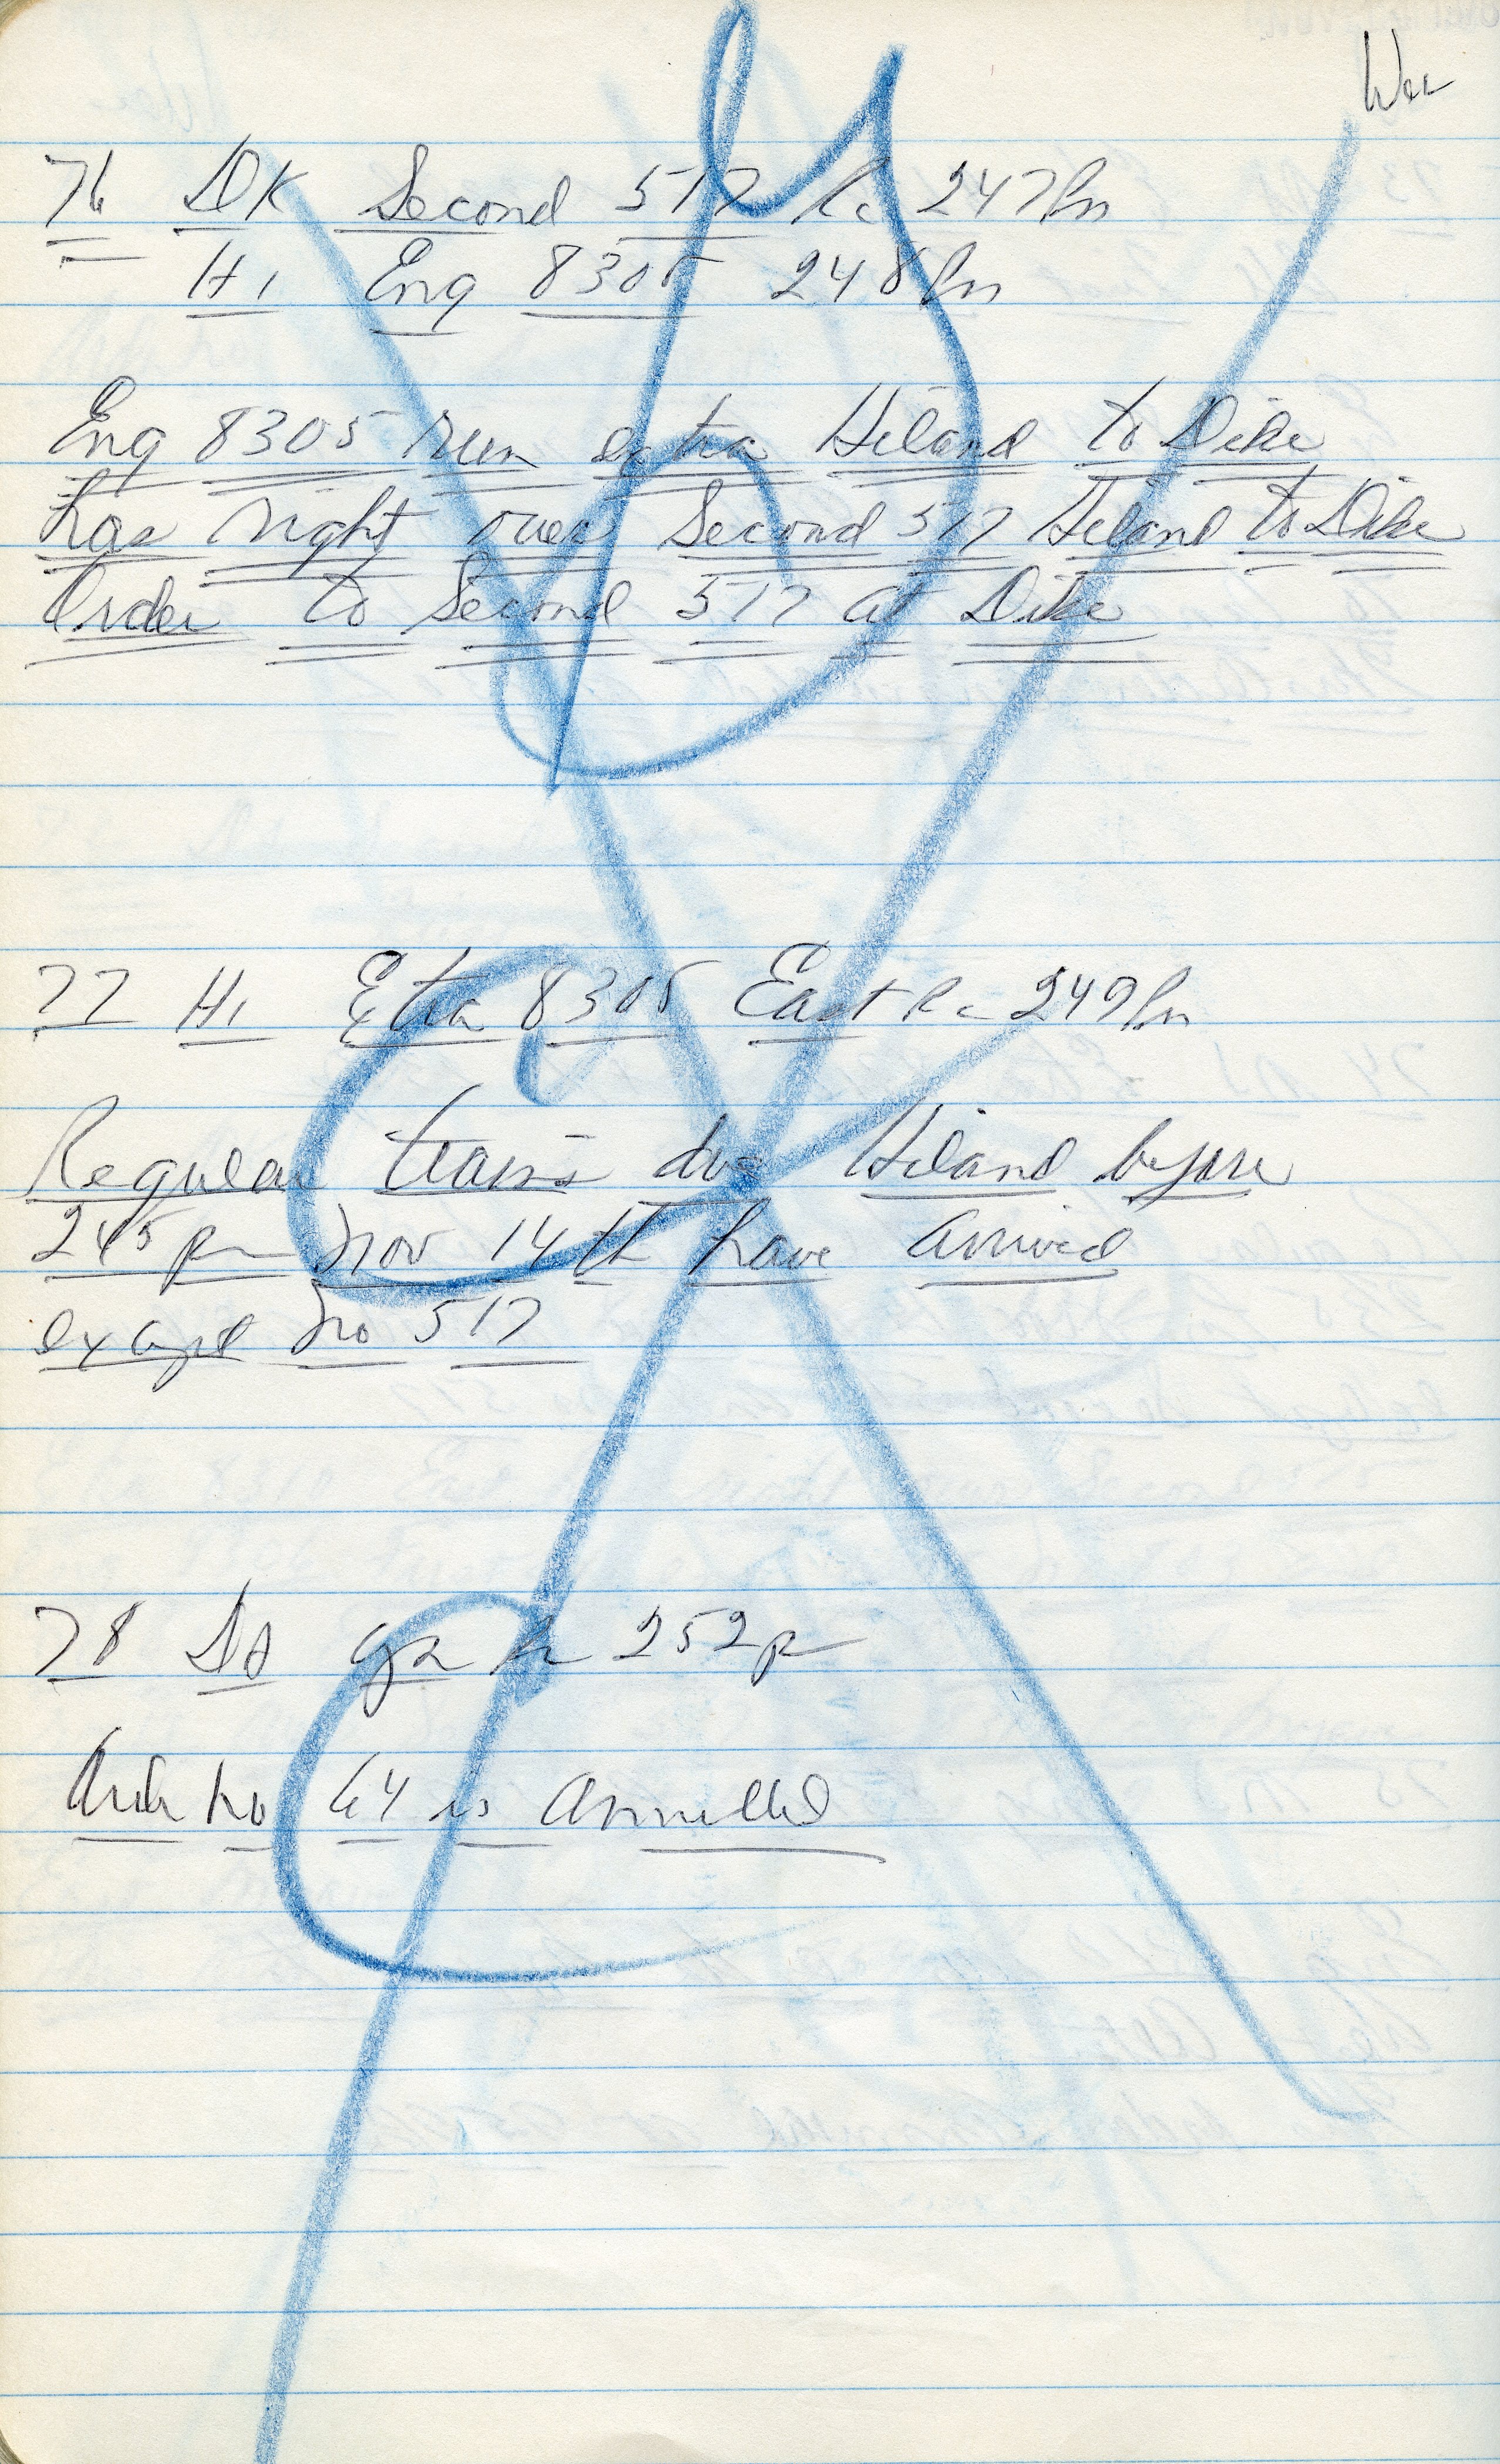 76 DK Second 517 Rc 247Pm
HI Eng 8305 248Pm
Eng 8305 run extra Hiland to Dike
has right over Second 517 Hiland to Dike
Order to Second 517 at Dike
77 HI Extra 8305 East Rc 249Pm
Regular trains due Hiland before
245 pm Nov 14th have arrived
except No 517
78 252p
Order No 64 is annulled